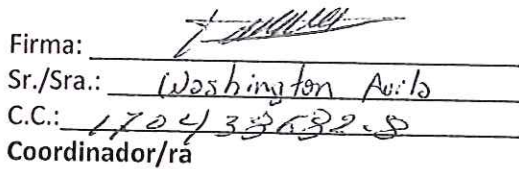 Firma:
Sr./Sra.: Washington Avila
C.C.:
Coordinador/ra